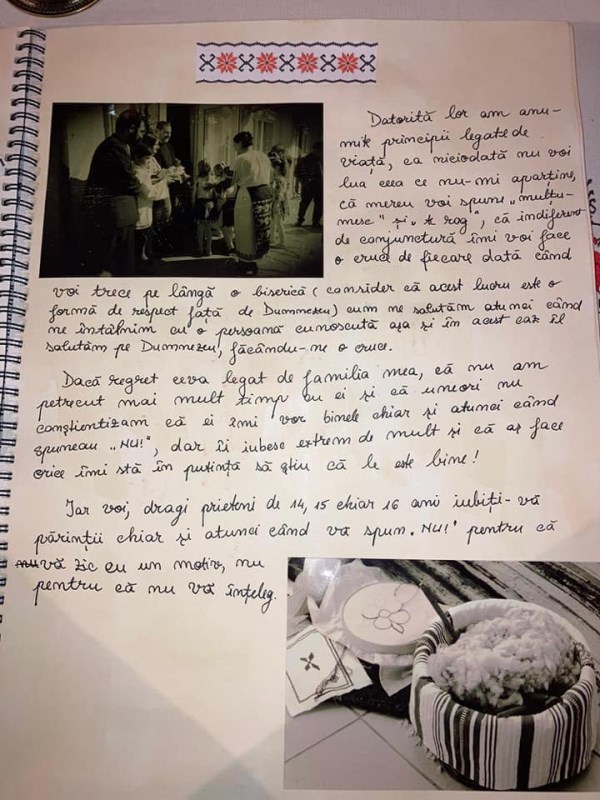 Datorită lor am anu-
mite principii legate de
viață, ca niciodată nu voi
lua ceea ce nu-mi aparține,
că mereu voi spune „mulțu-
mesc" și „te rog", că indiferent
de conjunctură îmi voi face
o cruce de fiecare dată când
voi trece pe lângă o biserică (consider că acest lucru este o
formă de respect față de Dumnezeu) cum ne salutăm atunci când
ne întâlnim cu o persoană cunoscută așa și în acest caz îl
salutăm pe Dumnezeu, făcându-ne o cruce.
Dacă regret ceva legat de familia mea, că nu am
petrecut mai mult timp cu ei și că uneori nu
conștientizam că ei îmi vor binele chiar și atunci când
spuneau „NU!", dar îi iubesc extrem de mult și că aș face
orice îmi stă în putință să știu că le este bine!
Iar voi, dragi prieteni de 14, 15 chiar 16 ani iubiți-vă
părinții chiar și atunci când vă spun „NU!" pentru că
vă zic cu un motiv, nu
pentru că nu vă înțeleg.